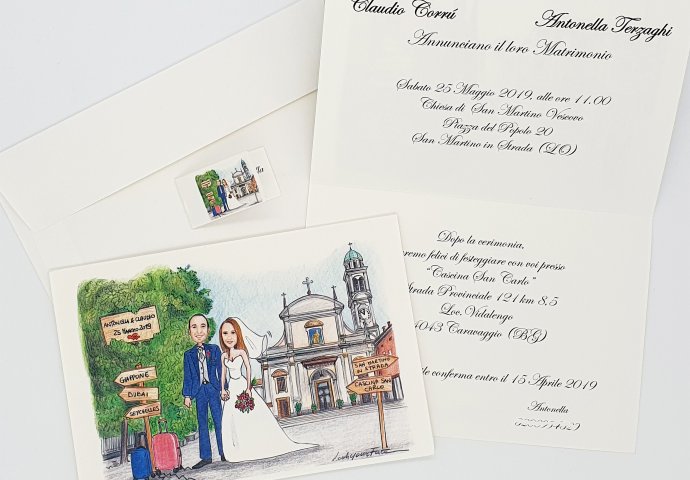 Claudio Corrú
Antonella Terzaghi
Annunciano il loro Matrimonio
Sabato 25 Maggio 2019, alle ore 11.00
Chiesa di San Martino Vescovo
Piazza del Popolo 20
San Martino in Strada (LO)
Dopo la cerimonia,
remo felici di festeggiare con voi presso
"Cascina San Carlo"
Strada Provinciale 121 km 8,5
Loc. Vidalengo
4043 Caravaggio (BG)
conferma entro il 15 Aprile 2019
Antonella
ANTONELLA & CLAUDIO
25 MAGGIO 2019
GIAPPONE
DUBAI
SEYCHELLES
SAN MARTINO
IN STRADA
CASCINA SAN
CARLO